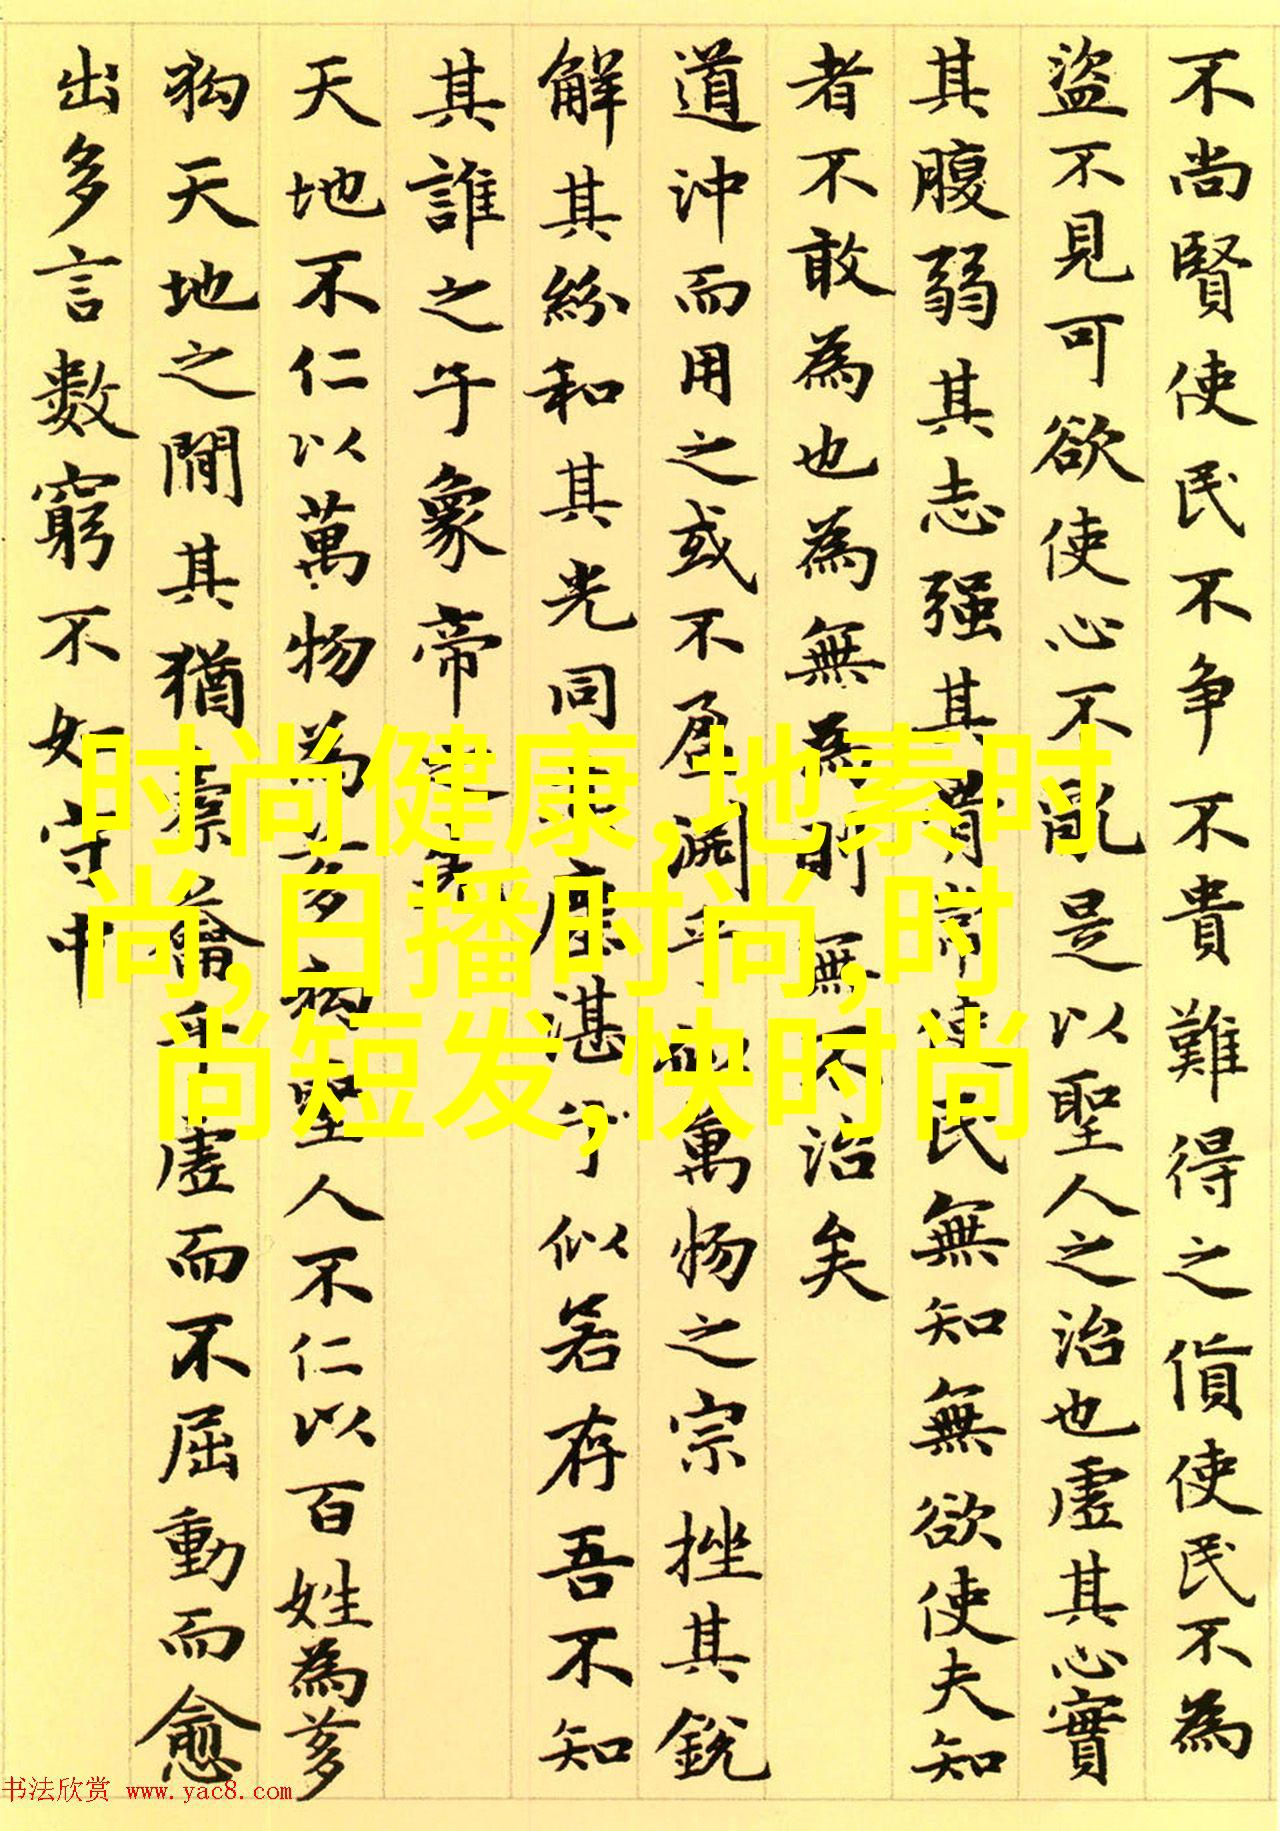 不尚賢使民不争不貴難得之貨使民不為
盜不見可欲使心不亂是以聖人之治也虛其心實
其腹弱其志强其骨常使民無知無欲使夫知
者不敢為也為無為則無不治矣
道沖而用之或不盈淵乎萬物之宗挫其銳
解其紛和其光同其塵湛兮似若存吾不知
其誰之子象帝之先
天地不仁以萬物為芻狗聖人不仁以百姓為芻
狗天地之間其猶橐籥乎虛而不屈動而愈
出多言數窮不如守中
时尚健康,地素时
尚,日播时尚,时
尚短发,快时尚
书法欣赏 www.yac8.com